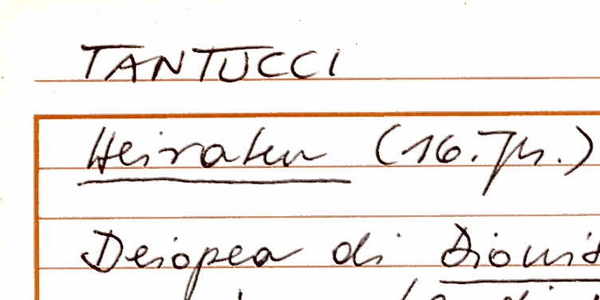 TANTUCCI
Heiraten (16. Jh.)
Deiopea di